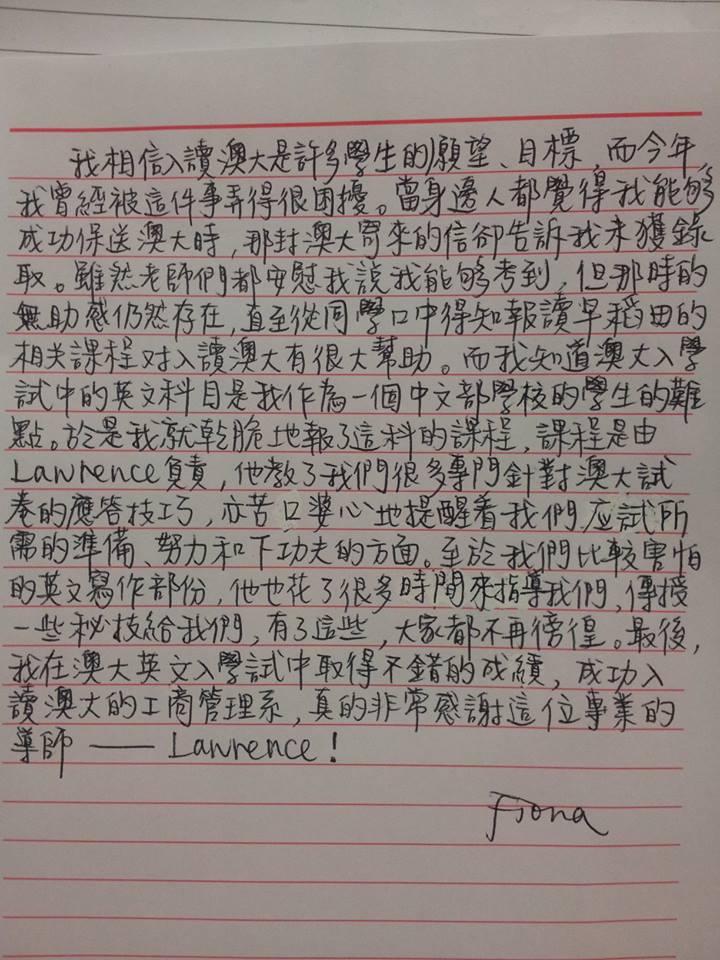 我相信入讀澳大是許多學生的願望、目標,而今年,
我曾經被這件事弄得很困擾。當身邊人都覺得我能够
成功保送澳大時,那封澳大寄來的信卻告訴我未獲錄
取。雖然老師們都安慰我說我能够考到,但那時的
無助感仍然存在,直至從同學口中得知報讀早稻田的
相关課程对入讀澳大有很大幫助。而我知道澳大入學
試中的英文科目是我作為一個中文部學校的學生的難
點。於是我就乾脆地報了這科的課程,課程是由
Lawrence負責,他教了我們很多專門針對澳大試
卷的應答技巧,亦苦口婆心地提醒着我們应試所
需的準備、努力和下功夫的方面。至於我們比較害怕
的英文寫作部份,他也花了很多時間來指導我們,傳授
一些秘技給我們,有了這些,大家都不再徬徨。最後,
我在澳大英文入學試中取得不錯的成績,成功入
讀澳大的工商管理系,真的非常感謝這位專業的
導師——Lawrence!
Fiona